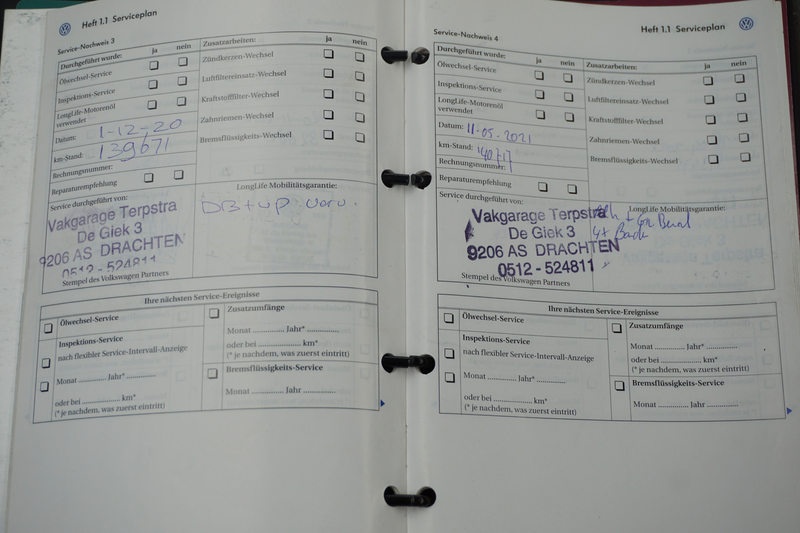 Heft 1.1 Serviceplan
Service-Nachweis 3
Durchgeführt wurde: ja nein
Ölwechsel-Service
Inspektions-Service
LongLife-Motorenöl
verwendet
Datum: 1-12-20
km-Stand: 139671
Rechnungsnummer:
Reparaturempfehlung
Zusatzarbeiten: ja nein
Zündkerzen-Wechsel
Luftfiltereinsatz-Wechsel
Kraftstofffilter-Wechsel
Zahnriemen-Wechsel
Bremsflüssigkeits-Wechsel
Service durchgeführt von:
Vakgarage Terpstra
De Giek 3
9206 AS DRACHTEN
0512-524811
Stempel des Volkswagen Partners
LongLife Mobilitätsgarantie:
Ihre nächsten Service-Ereignisse
Ölwechsel-Service
Inspektions-Service
nach flexibler Service-Intervall-Anzeige
Monat .............. Jahr* ..............
oder bei .............. km*
(* je nachdem, was zuerst eintritt)
Zusatzumfänge
Monat .............. Jahr* ..............
oder bei .............. km*
(* je nachdem, was zuerst eintritt)
Bremsflüssigkeits-Service
Monat .............. Jahr ..............
Heft 1.1 Serviceplan
Service-Nachweis 4
Durchgeführt wurde: ja nein
Ölwechsel-Service
Inspektions-Service
LongLife-Motorenöl
verwendet
Datum: 11-05-2021
km-Stand:
Rechnungsnummer:
Reparaturempfehlung
Zusatzarbeiten: ja nein
Zündkerzen-Wechsel
Luftfiltereinsatz-Wechsel
Kraftstofffilter-Wechsel
Zahnriemen-Wechsel
Bremsflüssigkeits-Wechsel
Service durchgeführt von:
Vakgarage Terpstra
De Giek 3
9206 AS DRACHTEN
0512-524811
Stempel des Volkswagen Partners
LongLife Mobilitätsgarantie:
Ihre nächsten Service-Ereignisse
Ölwechsel-Service
Inspektions-Service
nach flexibler Service-Intervall-Anzeige
Monat .............. Jahr* ..............
oder bei .............. km*
(* je nachdem, was zuerst eintritt)
Zusatzumfänge
Monat .............. Jahr* ..............
oder bei .............. km*
(* je nachdem, was zuerst eintritt)
Bremsflüssigkeits-Service
Monat .............. Jahr ..............